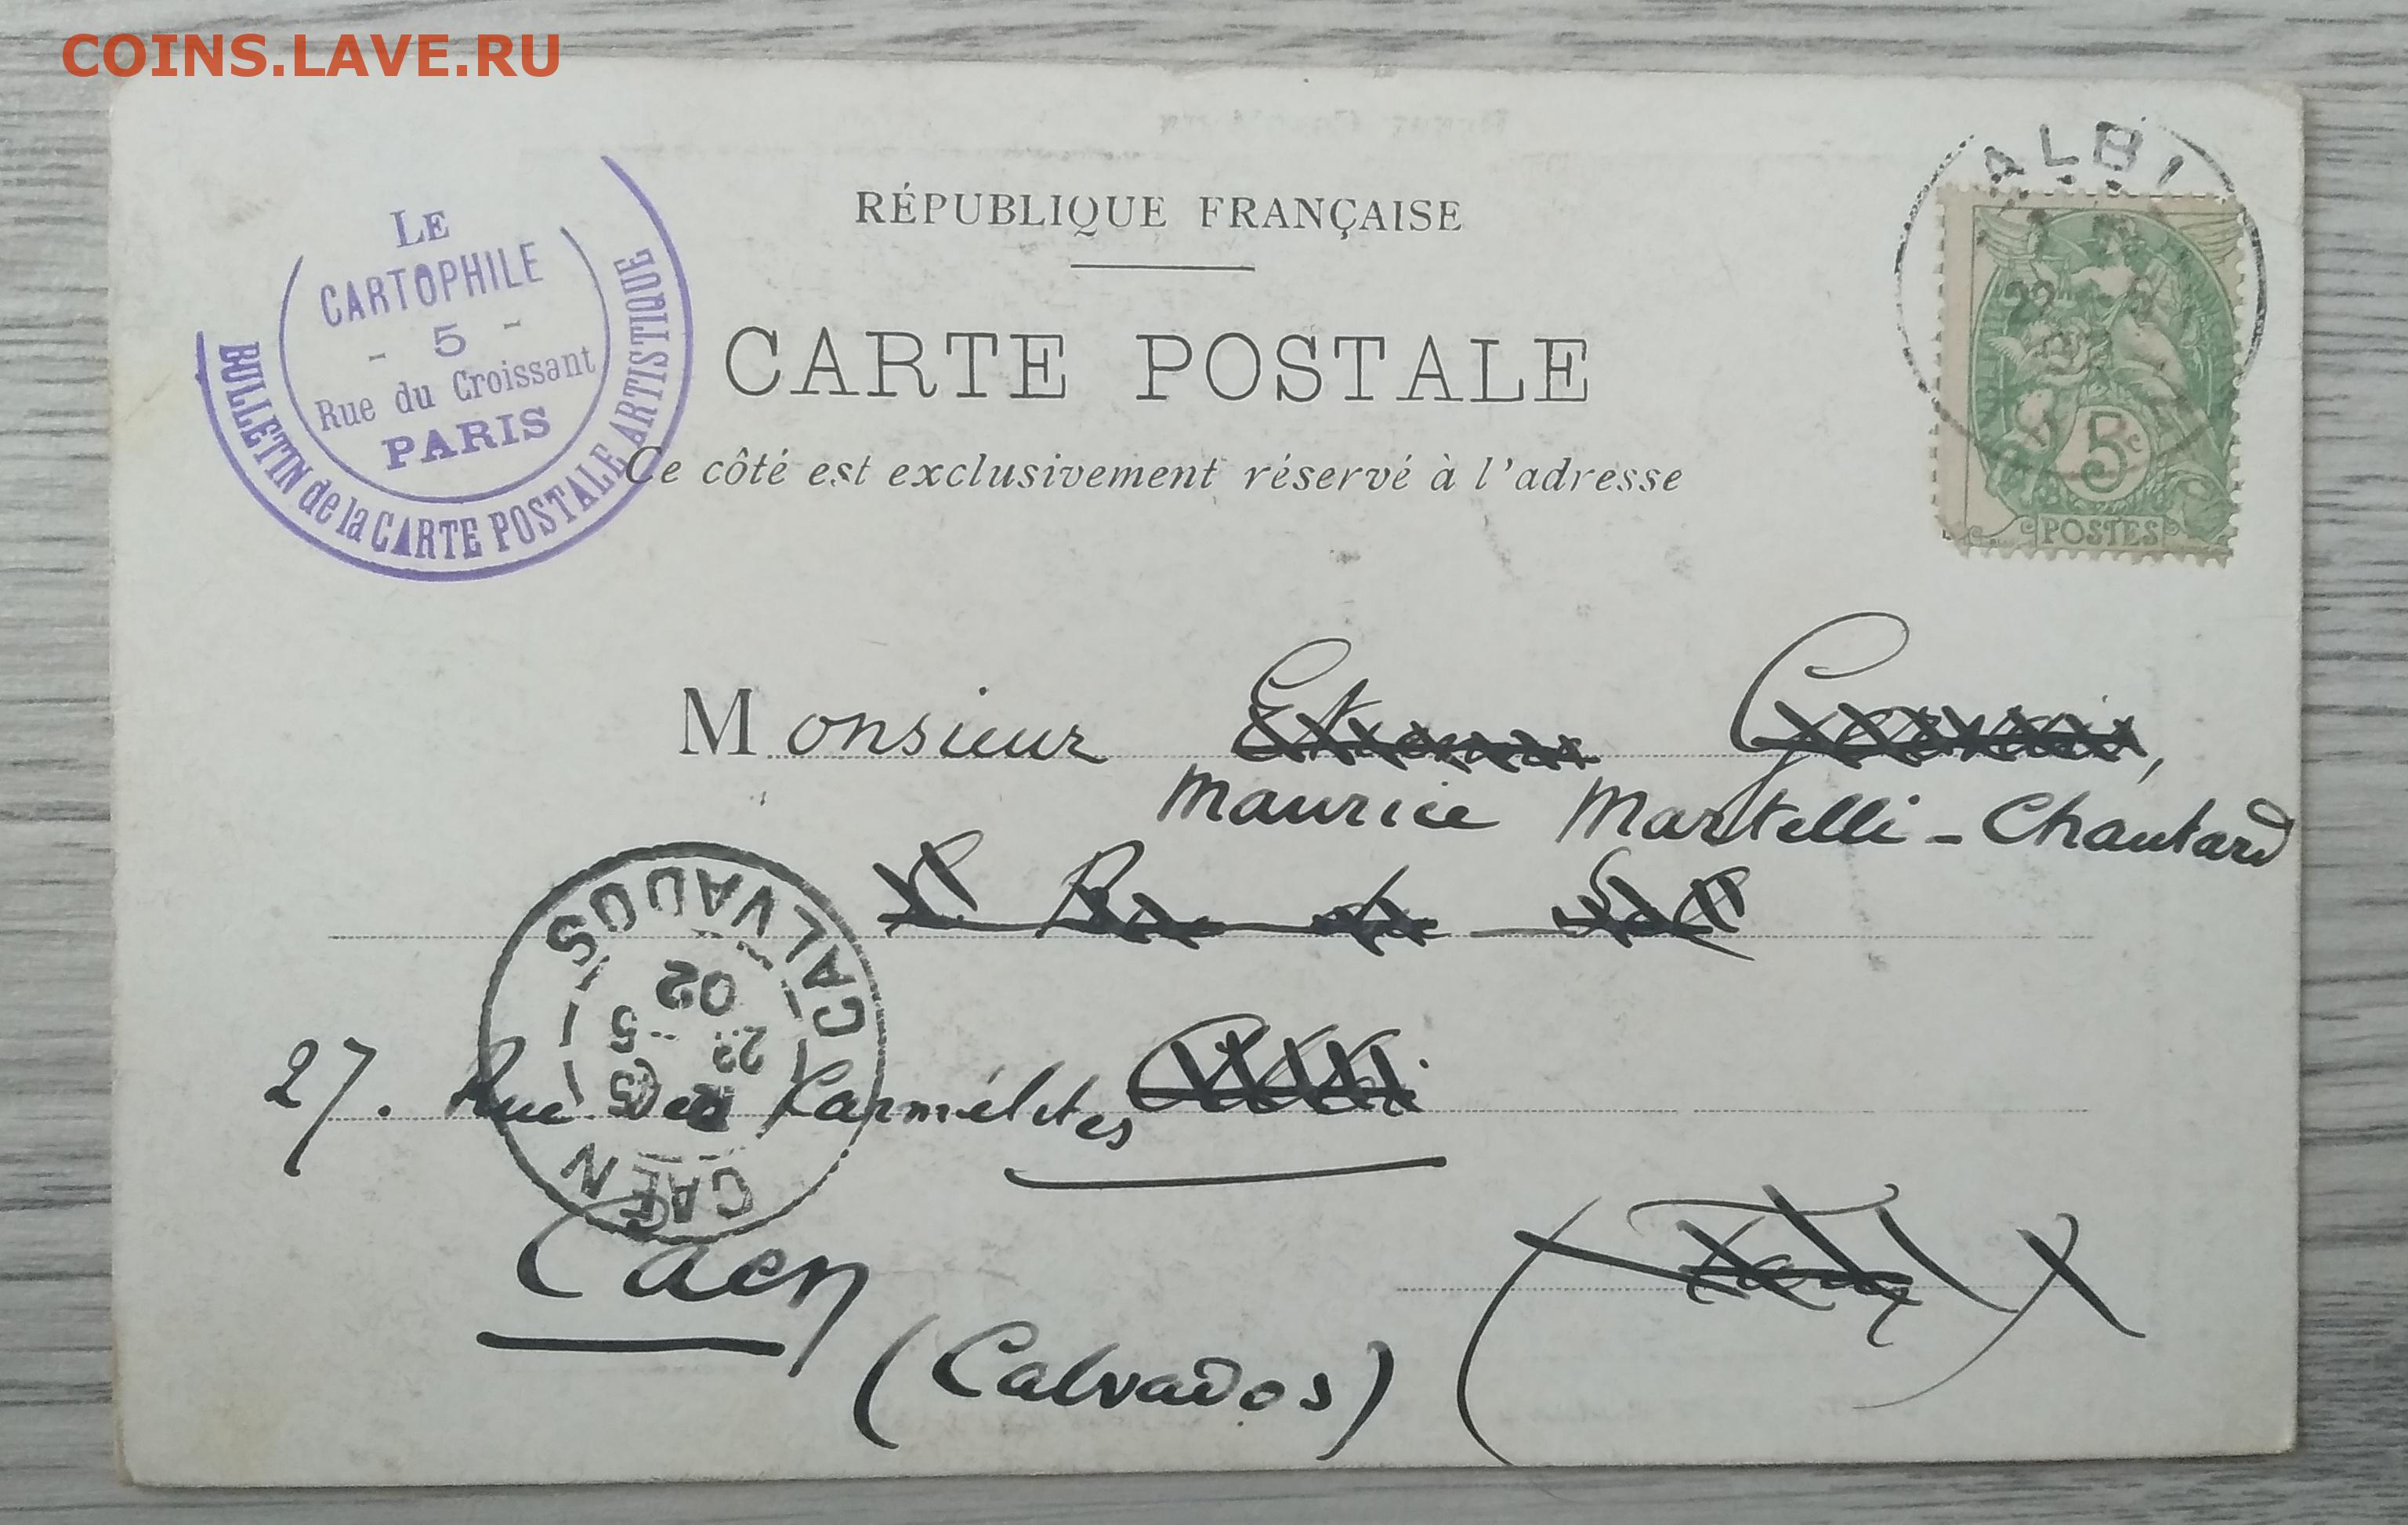 COINS.LAVE.RU
LE
CARTOPHILE
- 5 -
Rue du Croissant
PARIS
BULLETIN de la CARTE POSTALE ARTISTIQUE
RÉPUBLIQUE FRANÇAISE
CARTE POSTALE
Ce côté est exclusivement réservé à l'adresse
ALBI
5c
POSTES
Monsieur
Maurice Martelli-Chautard
CALVADOS
02
5
CAEN
27. Rue des Carmélites
Caen
(Calvados)